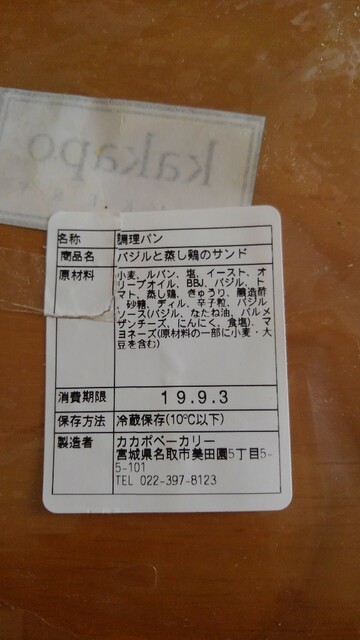 kakapo
名称 調理パン
商品名 バジルと蒸し鶏のサンド
原材料 小麦、ルバン、塩、イースト、オ
リーブオイル、BBJ、バジル、ト
マト、蒸し鶏、きゅうり、醸造酢
、砂糖、ディル、辛子粒、バジル
ソース(バジル、なたね油、パルメ
ザンチーズ、にんにく、食塩)、マ
ヨネーズ(原材料の一部に小麦・大
豆を含む)
消費期限 19.9.3
保存方法 冷蔵保存(10℃以下)
製造者 カカポベーカリー
宮城県名取市美田園5丁目5-
5-101
TEL 022-397-8123